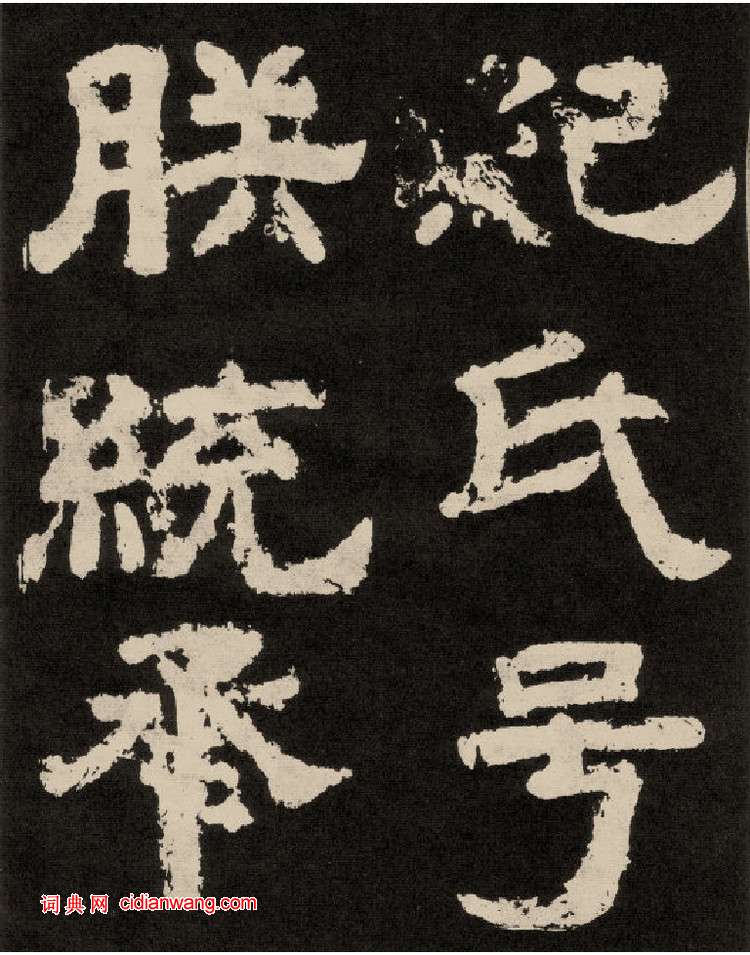 氏号
朕統承
词典网 cidianwang.com